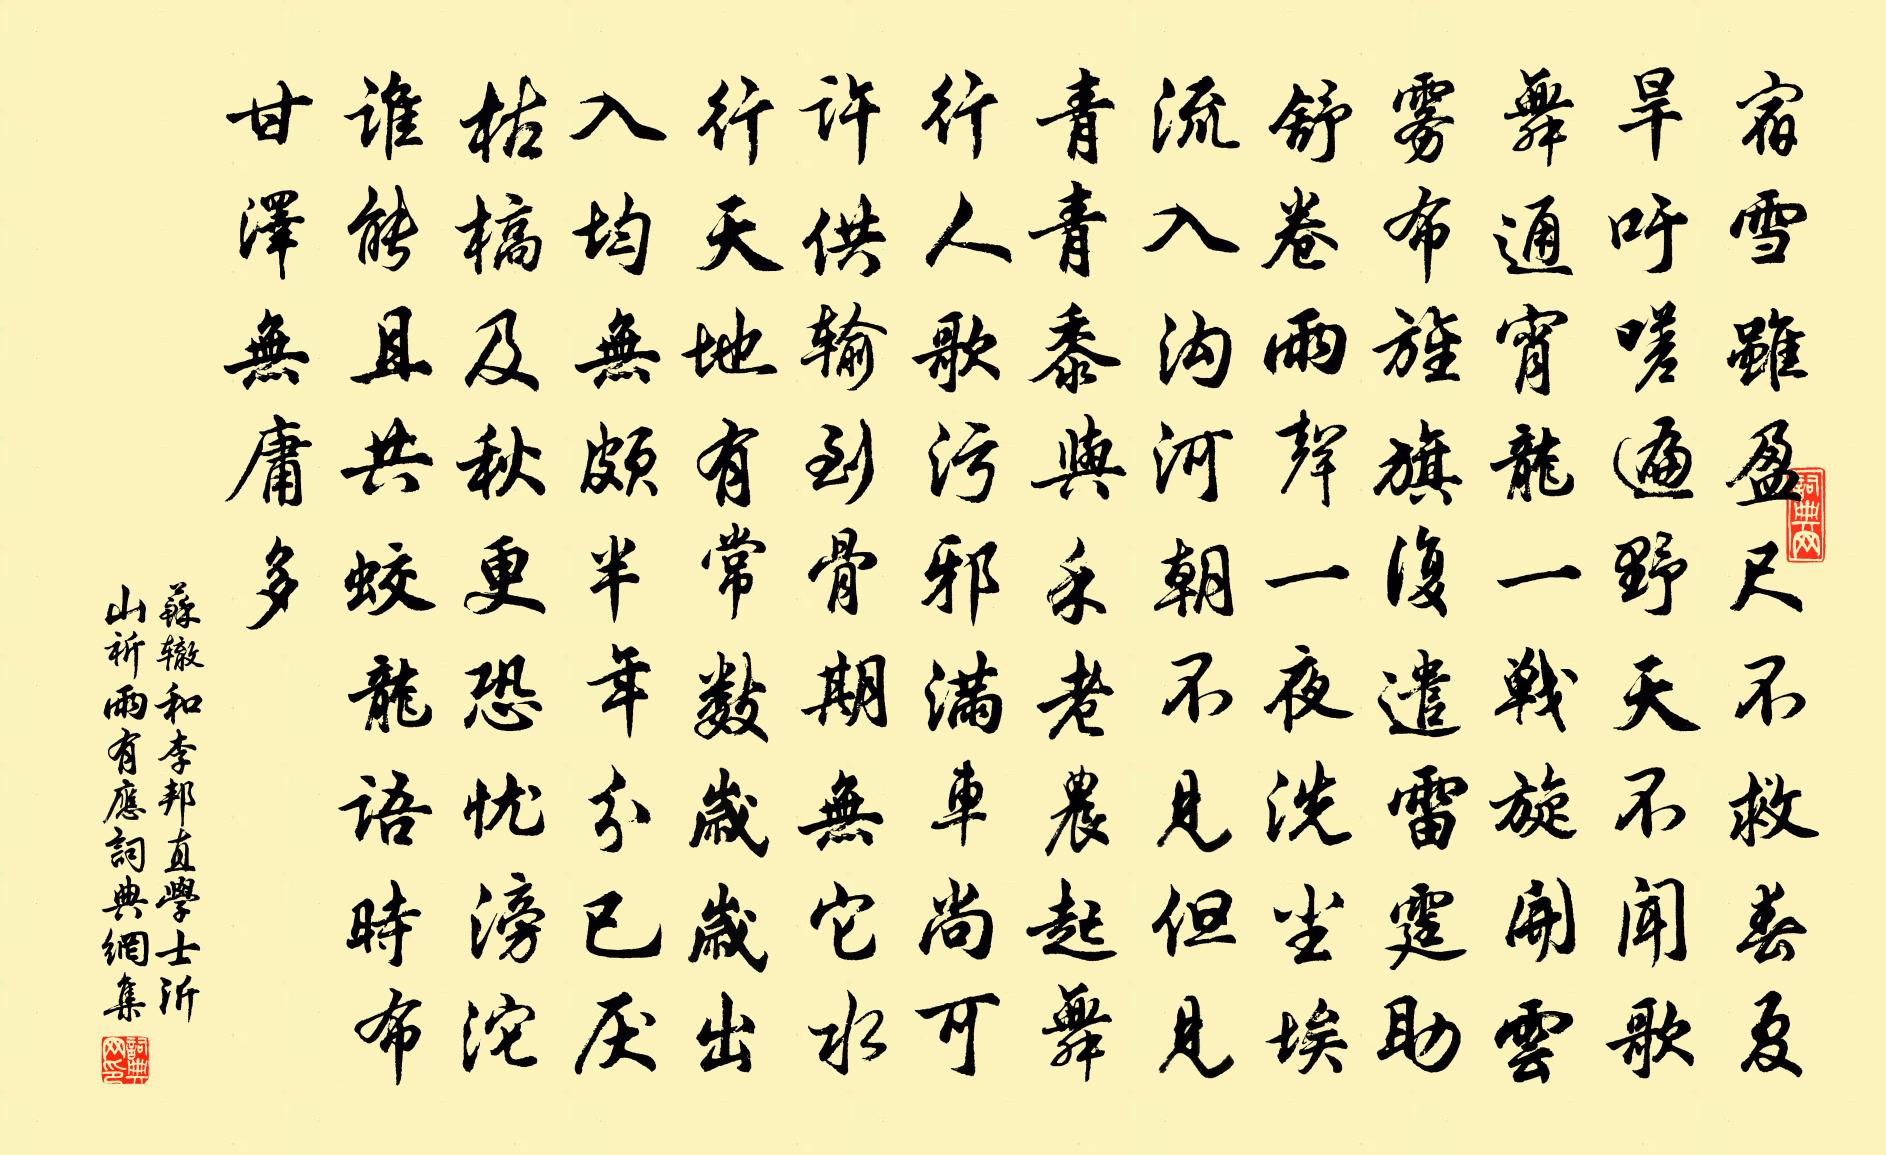 宿雪雖盈尺不救春夏
旱吁嗟遍野天不聞歌
舞通宵龍一戦旋開雲
雾布旌旗復遣雷霆助
舒卷雨聲一夜洗尘埃
流入沟河朝不見但見
青青黍與禾老農起舞
行人歌污邪滿車尚可
許供输到骨期無它水
行天地有常數歲歲出
入均無頗半年分已厌
枯槁及秋更恐忧滂沱
谁能且共蛟龍语時布
甘澤無庸多
蘇辙和李邦直學士沂
山祈雨有應詞典網集
詞典网